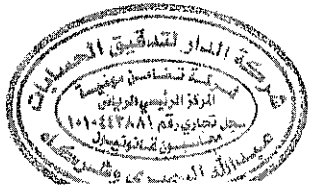 شركة الدار لتدقيق الحسابات
شركة تضامن مهنية
المركز الرئيسي الرياض
سجل تجاري رقم ١٠١٠٤٤٣٨٨١
محاسبون قانونيون
عبدالله